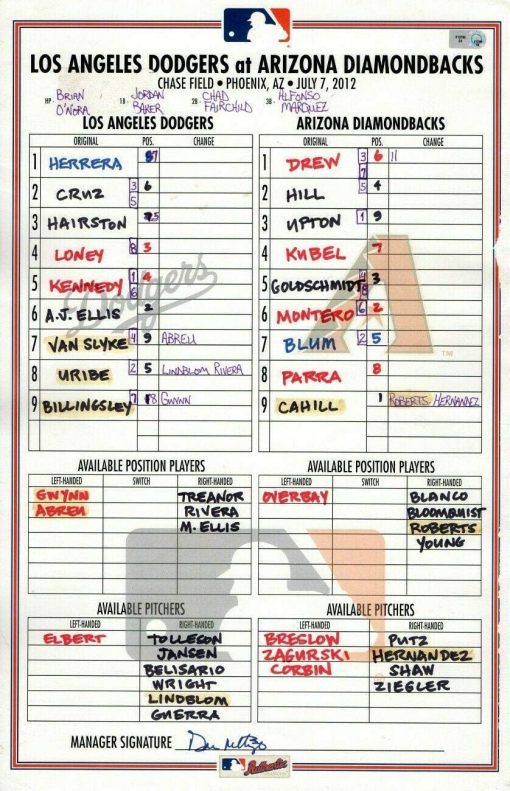 LOS ANGELES DODGERS at ARIZONA DIAMONDBACKS
CHASE FIELD • PHOENIX, AZ • JULY 7, 2012
HP- BRIAN O'NORA 1B- JORDAN BAKER 2B- CHAD FAIRCHILD 3B- ALFONSO MARQUEZ
LOS ANGELES DODGERS
ORIGINAL POS. CHANGE
1 HERRERA
2 CRUZ 3 5 6
3 HAIRSTON
4 LONEY 8 3
5 KENNEDY 1 6 4
6 A.J. ELLIS 2
7 VAN SLYKE 4 9 ABREU
8 URIBE 2 5 LINDBLOM RIVERA
9 BILLINGSLEY GWYNN
ARIZONA DIAMONDBACKS
ORIGINAL POS. CHANGE
1 DREW 3 7 6 11
2 HILL 5 4
3 UPTON 1 9
4 KUBEL 7
5 GOLDSCHMIDT 3
6 MONTERO 6 2
7 BLUM 2 5
8 PARRA 8
9 CAHILL 1 ROBERTS HERNANDEZ
Dodgers
TM
AVAILABLE POSITION PLAYERS
LEFT-HANDED SWITCH RIGHT-HANDED
GWYNN TREANOR
ABREU RIVERA
M. ELLIS
AVAILABLE POSITION PLAYERS
LEFT-HANDED SWITCH RIGHT-HANDED
OVERBAY BLANCO
BLOOMQUIST
ROBERTS
YOUNG
AVAILABLE PITCHERS
LEFT-HANDED RIGHT-HANDED
ELBERT TOLLESON
JANSEN
BELISARIO
WRIGHT
LINDBLOM
GUERRA
AVAILABLE PITCHERS
LEFT-HANDED RIGHT-HANDED
BRESLOW PUTZ
ZAGURSKI HERNANDEZ
CORBIN SHAW
ZIEGLER
MANAGER SIGNATURE
Authentic